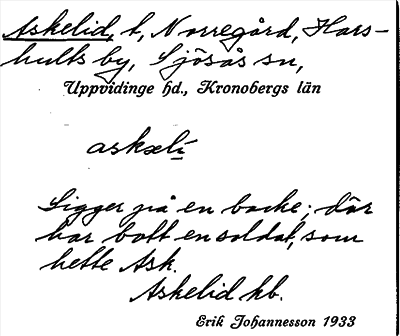 Askelid, t, Norregård, Hars-
hults by, Sjösås sn,
Uppvidinge hd., Kronobergs län
askæli
Ligger på en backe; där
har bott en soldat, som
hette Ask.
Askelid hb.
Erik Johannesson 1933